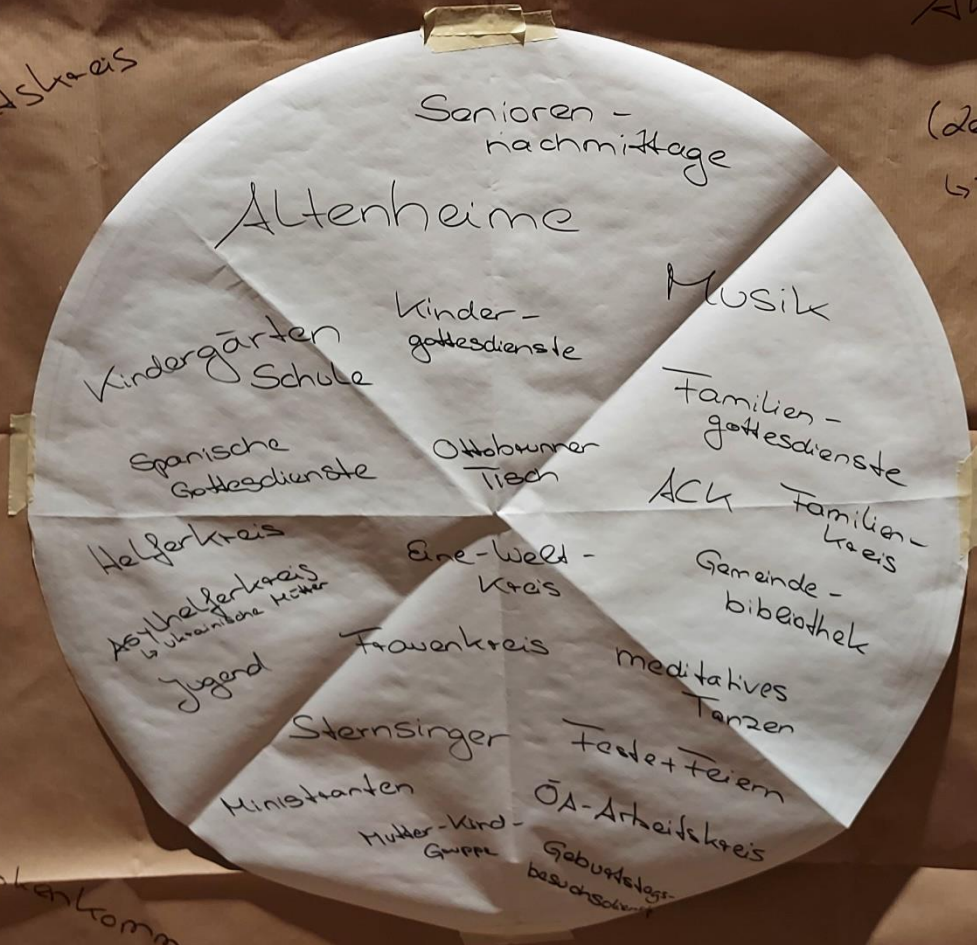 Senioren-
nachmittage
Altenheime
Musik
Kinder-
gottesdienste
Kindergärten
Schule
Familien-
gottesdienste
Spanische
Gottesdienste
Ottobrunner
Tisch
ACK
Familien-
kreis
Helferkreis
Eine-Welt-
Kreis
Gemeinde-
bibliothek
Asylhelferkreis
↳ ukrainische Mütter
Jugend
Frauenkreis
meditatives
Tanzen
Sternsinger
Feste + Feiern
Ministranten
ÖA-Arbeitskreis
Mutter-Kind-
Gruppe
Geburtstags-
besuchsdienst